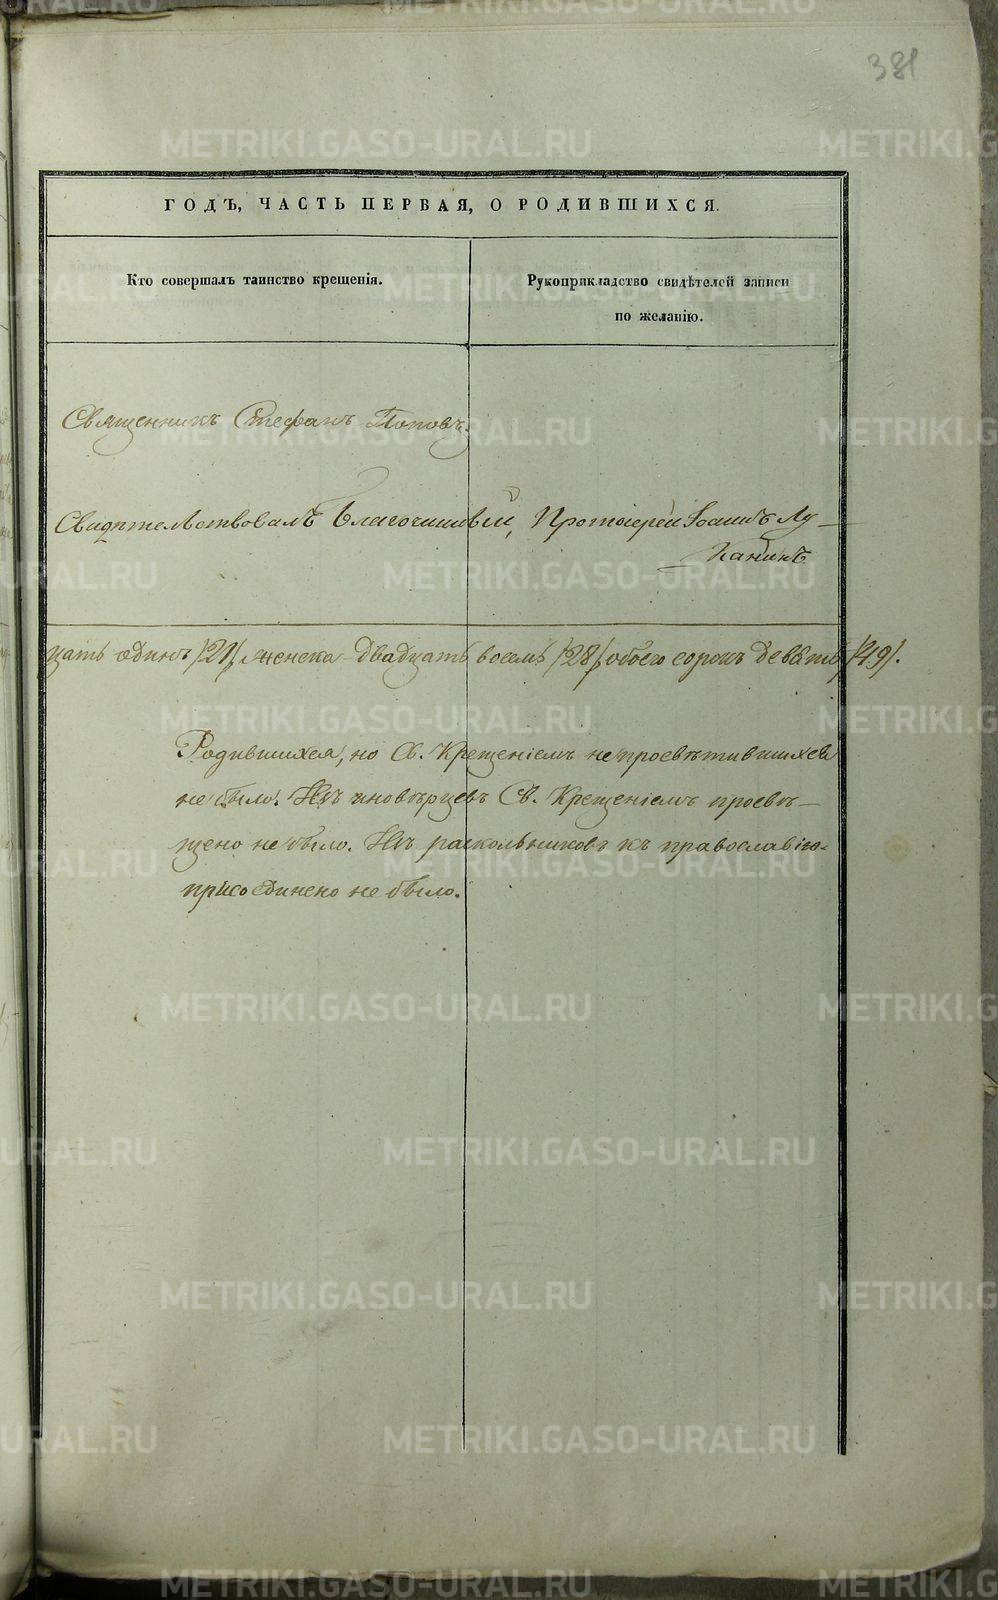 381
ГОДЪ, ЧАСТЬ ПЕРВАЯ, О РОДИВШИХСЯ.
Кто совершалъ таинство крещенія.
Рукоприкладство свидѣтелей записи
по желанію.
Священникъ Стефанъ Поповъ.
Свидѣтельствовалъ Благочинный, Протоіерей Іоаннъ Лу-
канинъ
цать одинъ /21/, женска двадцать восемь /28/, обоего сорокъ девять /49/.
Родившихся, но Св. Крещеніемъ непросвѣтившихся
не было. Изъ иновѣрцевъ Св. Крещеніемъ просвѣ-
щено не было. Изъ раскольниковъ къ православію
присоединено не было.
METRIKI.GASO-URAL.RU